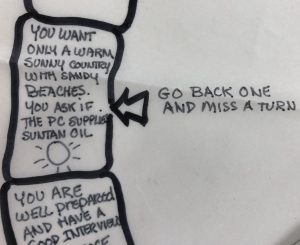 YOU WANT
ONLY A WARM
SUNNY COUNTRY
WITH SANDY
BEACHES.
YOU ASK IF
THE PC SUPPLIES
SUNTAN OIL
GO BACK ONE
AND MISS A TURN
YOU ARE
WELL PREPARED
AND HAVE A
GOOD INTERVIEW